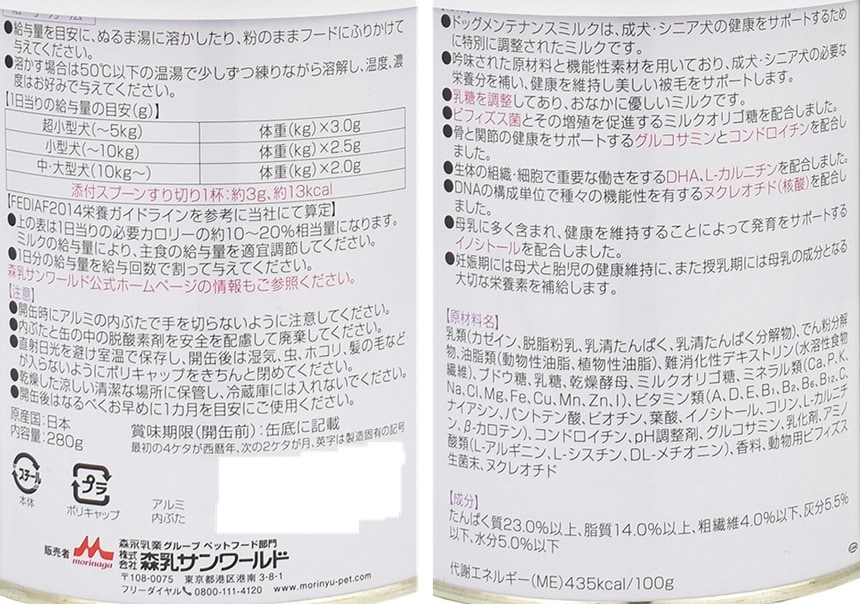 ●給与量を目安に、ぬるま湯に溶かしたり、粉のままフードにふりかけて
与えてください。
●溶かす場合は50℃以下の温湯で少しずつ練りながら溶解し、温度、濃
度はお好みで与えてください。
【1日当りの給与量の目安(g)】
超小型犬(〜5kg) 体重(kg)×3.0g
小型犬(〜10kg) 体重(kg)×2.5g
中・大型犬(10kg〜) 体重(kg)×2.0g
添付スプーンすり切り1杯:約3g、約13kcal
【FEDIAF2014栄養ガイドラインを参考に当社にて算定】
●上の表は1日当りの必要カロリーの約10〜20%相当量になります。
ミルクの給与量により、主食の給与量を適宜調節してください。
●1日分の給与量を給与回数で割って与えてください。
森乳サンワールド公式ホームページの情報もご参照ください。
【注意】
●開缶時にアルミの内ぶたで手を切らないように注意してください。
●内ぶたと缶の中の脱酸素剤を安全を配慮して廃棄してください。
●直射日光を避け室温で保存し、開缶後は湿気、虫、ホコリ、髪の毛など
が入らないようにポリキャップをきちんと閉めてください。
●乾燥した涼しい清潔な場所に保管し、冷蔵庫には入れないでください。
●開缶後はなるべくお早めに1カ月を目安にご使用ください。
原産国:日本
内容量:280g
賞味期限(開缶前):缶底に記載
最初の4ケタが西暦年、次の2ケタが月、英字は製造固有の記号
スチール
本体
プラ
ポリキャップ
アルミ
内ぶた
販売者
morinaga
森永乳業グループ ペットフード部門
株式会社 森乳サンワールド
〒108-0075 東京都港区港南 3-8-1
フリーダイヤル 0800-111-4120 www.morinyu-pet.com
●ドッグメンテナンスミルクは、成犬・シニア犬の健康をサポートするため
に特別に調製されたミルクです。
●吟味された原材料と機能性素材を用いており、成犬・シニア犬の必要な
栄養分を補い、健康を維持し美しい被毛をサポートします。
●乳糖を調整してあり、おなかに優しいミルクです。
●ビフィズス菌とその増殖を促進するミルクオリゴ糖を配合しました。
●骨と関節の健康をサポートするグルコサミンとコンドロイチンを配合し
ました。
●生体の組織・細胞で重要な働きをするDHA、L-カルニチンを配合しました。
●DNAの構成単位で種々の機能性を有するヌクレオチド(核酸)を配合し
ました。
●母乳に多く含まれ、健康を維持することによって発育をサポートする
イノシトールを配合しました。
●妊娠期には母犬と胎児の健康維持に、また授乳期には母乳の成分となる
大切な栄養素を補給します。
【原材料名】
乳類(カゼイン、脱脂粉乳、乳清たんぱく、乳清たんぱく分解物)、でん粉分解
物、油脂類(動物性油脂、植物性油脂)、難消化性デキストリン(水溶性食物
繊維)、ブドウ糖、乳糖、乾燥酵母、ミルクオリゴ糖、ミネラル類(Ca,P,K,
Na,Cl,Mg,Fe,Cu,Mn,Zn,I)、ビタミン類(A,D,E,B₁,B₂,B₆,B₁₂,C,
ナイアシン,パントテン酸,ビオチン,葉酸,イノシトール,コリン,L-カルニチ
ン,β-カロテン)、コンドロイチン、pH調整剤、グルコサミン、乳化剤、アミノ
酸類(L-アルギニン,L-シスチン,DL-メチオニン)、香料、動物用ビフィズス
生菌末、ヌクレオチド
【成分】
たんぱく質23.0%以上、脂質14.0%以上、粗繊維4.0%以下、灰分5.5%
以下、水分5.0%以下
代謝エネルギー(ME)435kcal/100g